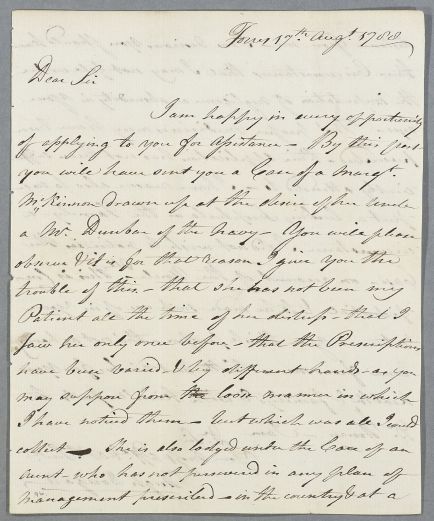 Fores 17th Augt 1788
Dear Sir
I am happy in every opportunity
of applying to you for assistance – By this post
you will have sent you a Case of a Margt.
McKinnon drawn up at the desire of her Uncle
a Mr. Dunbar of the Navy – You will please
observe & it is for that reason I give you the
trouble of this – that she has not been my
Patient all the time of her distress – that I
saw her only once before – that the Prescriptions
have been varied & by different hands – as you
may suppose from the loose manner in which
I have noticed them – but which was all I could
collect – She is also lodged under the Care of an
aunt who has not persevered in any plan of
management prescribed – in the country & at a